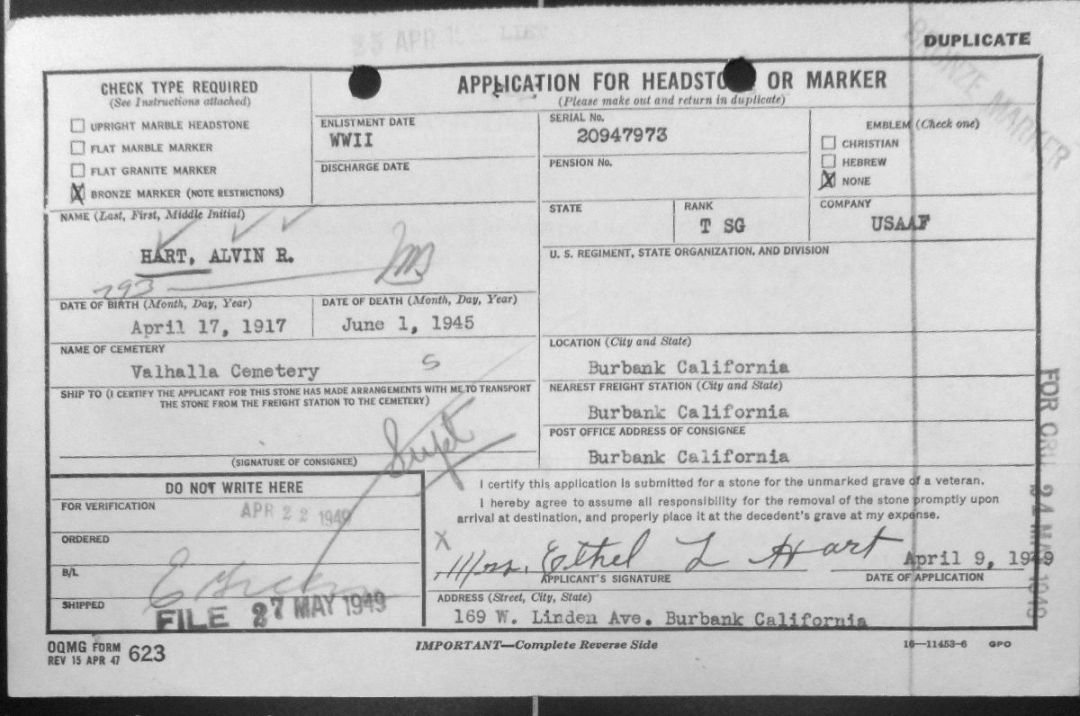 DUPLICATE
BRONZE MARKER
25 APR
CHECK TYPE REQUIRED
(See Instructions attached)
UPRIGHT MARBLE HEADSTONE
FLAT MARBLE MARKER
FLAT GRANITE MARKER
X BRONZE MARKER (NOTE RESTRICTIONS)
APPLICATION FOR HEADSTO OR MARKER
(Please make out and return in duplicate)
ENLISTMENT DATE
WWII
DISCHARGE DATE
SERIAL No.
20947973
PENSION No.
EMBLEM (Check one)
CHRISTIAN
HEBREW
X NONE
NAME (Last, First, Middle Initial)
HART, ALVIN R.
293
STATE
RANK
T SG
COMPANY
USAAF
U. S. REGIMENT, STATE ORGANIZATION, AND DIVISION
DATE OF BIRTH (Month, Day, Year)
April 17, 1917
DATE OF DEATH (Month, Day, Year)
June 1, 1945
NAME OF CEMETERY
Valhalla Cemetery
S
LOCATION (City and State)
Burbank California
SHIP TO (I CERTIFY THE APPLICANT FOR THIS STONE HAS MADE ARRANGEMENTS WITH ME TO TRANSPORT
THE STONE FROM THE FREIGHT STATION TO THE CEMETERY)
Supt
(SIGNATURE OF CONSIGNEE)
NEAREST FREIGHT STATION (City and State)
Burbank California
POST OFFICE ADDRESS OF CONSIGNEE
Burbank California
DO NOT WRITE HERE
FOR VERIFICATION
APR 22 1949
ORDERED
B/L
SHIPPED
FILE 27 MAY 1949
I certify this application is submitted for a stone for the unmarked grave of a veteran.
I hereby agree to assume all responsibility for the removal of the stone promptly upon
arrival at destination, and properly place it at the decedent's grave at my expense.
X
Mrs. Ethel L Hart
APPLICANT'S SIGNATURE
April 9, 1949
DATE OF APPLICATION
ADDRESS (Street, City, State)
169 W. Linden Ave. Burbank California
FOR
1949
OQMG FORM
REV 15 APR 47 623
IMPORTANT—Complete Reverse Side
16—11453-6 GPO